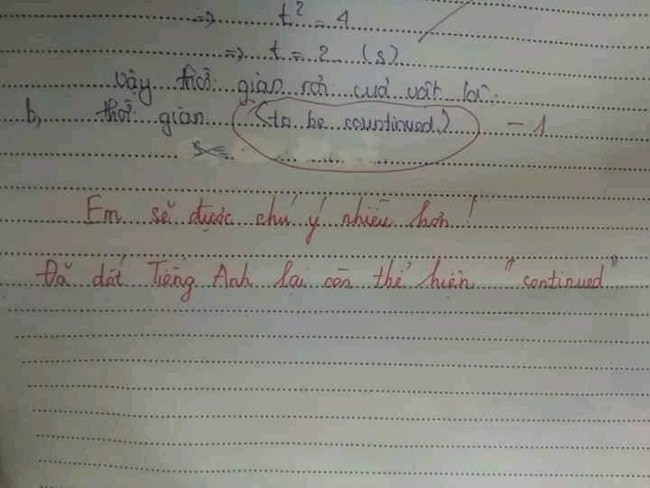 => t² = 4
=> t = 2 (s)
vậy thời gian rơi của vật là:
b, thời gian (to be countinued) - 1
Em sẽ được chú ý nhiều hơn!
Đã dốt Tiếng Anh lại còn thể hiện "continued"